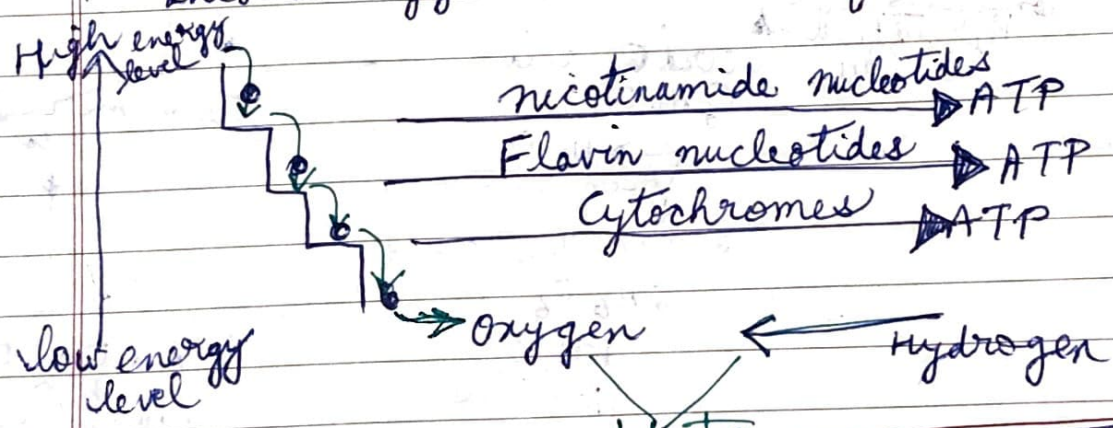 High energy
level
nicotinamide nucleotides ATP
Flavin nucleotides ATP
Cytochromes ATP
Oxygen
Hydrogen
low energy
level